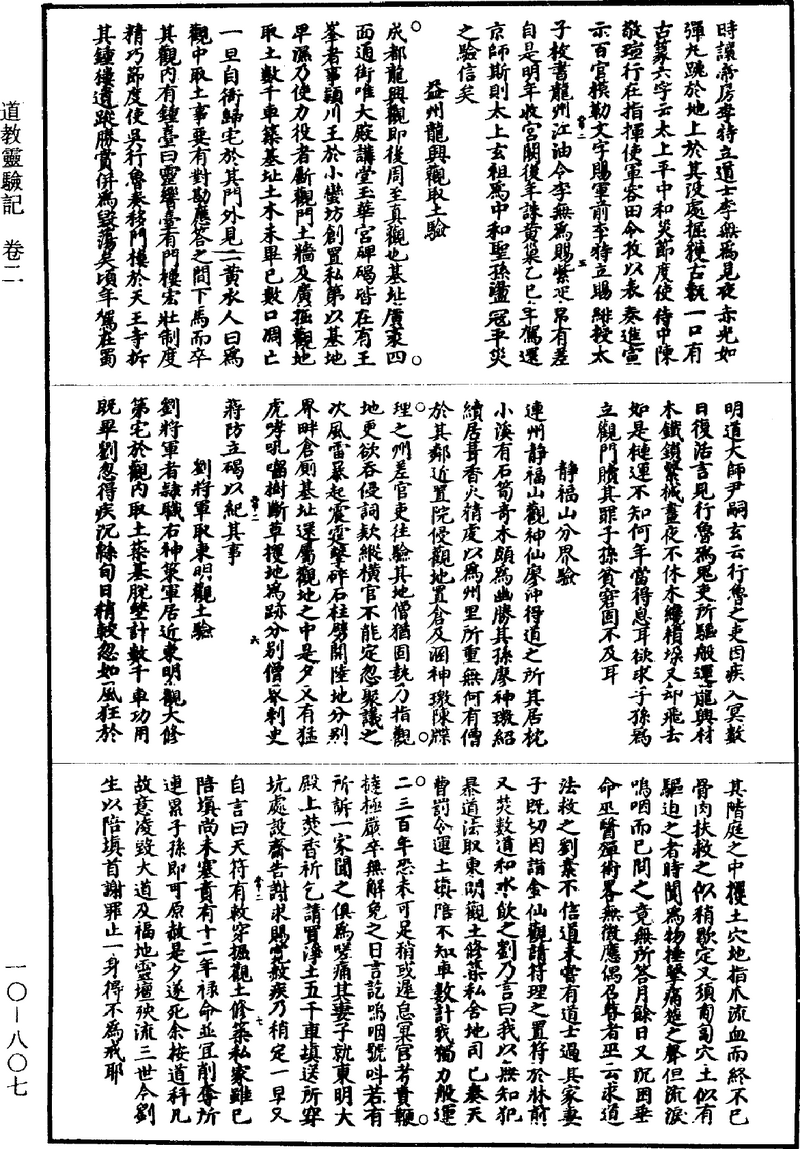 道教靈驗記 卷二
一〇—八〇七
時讓帝房宰特立道士李無爲見夜赤光如
彈丸跳於地上於其沒處掘獲古甎一口有
古篆六字云太上平中和災節度使侍中陳
敬瑄行在指揮使軍容田令孜以表奏進宣
示百官模勒文字賜軍前李特立賜緋授太
子校書龍州江油令李無爲賜紫疋帛有差
自是明年收宮闕後年誅黃巢乙巳年駕還
京師斯則太上玄祖爲中和聖孫盪寇平災
之驗信矣
益州龍興觀取土驗
成都龍興觀即後周至真觀也基址廣袤四
面通街唯大殿講堂玉華宮碑碣皆在有王
峯者事潁川王於小蠻坊創置私第以基地
卑濕乃使力役者斸觀門土牆及廣掘觀地
取土數千車築基址土木未畢已數口凋亡
一旦自衙歸宅於其門外見一黃衣人曰爲
觀中取土事要有對勘應答之間下馬而卒
其觀內有鍾臺曰靈響臺有門樓宏壯制度
精巧節度使吳行魯奏移門樓於天王寺拆
其鍾樓遺蹤勝賞併爲毀蕩矣頃年駕在蜀
明道大師尹嗣玄云行魯之吏因疾入冥數
日復活言見行魯爲鬼吏所驅般運龍興材
木鐵鎖繫械晝夜不休木纔積垛又却飛去
如是搥運不知何年當得息耳欲求子孫爲
立觀門贖其罪子孫貧窘固不及耳
靜福山分界驗
連州靜福山觀神仙廖沖得道之所其居枕
小溪有石筍奇木頗爲幽勝其孫廖神璬紹
續居葺香火精虔以爲州里所重無何有僧
於其鄰近置院侵觀地置倉及溷神璬陳牒
理之州差官吏往驗其地僧猶固執刀指觀
地更欲吞侵詞款縱橫官不能定忽聚議之
次風雷暴起震霆擊碎石柱劈開陸地分別
界畔倉廁基址還屬觀地之中是夕又有猛
虎哮吼囓樹斷草攫地爲跡分別僧界刺史
蔣防立碣以紀其事
劉將軍取東明觀土驗
劉將軍者隸職右神策軍居近東明觀大修
第宅於觀內取土築基脫墼計數千車功用
既畢劉忽得疾沉緜旬日稍較忽如風狂於
其階庭之中攫土穴地指爪流血而終不已
骨肉扶救之似稍歇定又須匍匐穴土似有
驅迫之者時聞爲物捶擊痛楚之聲但流淚
嗚咽而已問之竟無所答月餘日又沉困垂
命巫醫殫術畧無徵應偶召尋者巫云求道
法救之劉素不信道未嘗有道士過其家妻
子既切因詣金仙觀請符理之置符於牀前
又焚數道和水飲之劉乃言曰我以無知犯
暴道法取東明觀土修築私舍地司已奏天
曹罰令運土填陪不知車數計我獨力般運
二三百年恐未可足稍或遲息冥官考責鞭
撻極嚴卒無解免之日言訖嗚咽號叫若有
所訴一家聞之俱爲嗟痛其妻子就東明大
殿上焚香祈乞請買淨土五千車填送所穿
坑處設齋告謝求賜寬救疾乃稍定一旦又
自言曰天符有敕穿掘觀土修築私家雖已
陪填尚未塞責有十二年祿命並宜削奪所
連累子孫即可原赦是夕遂死余按道科凡
故意凌毀大道及福地靈壇殃流三世今劉
生以陪填首謝罪止一身得不爲戒耶